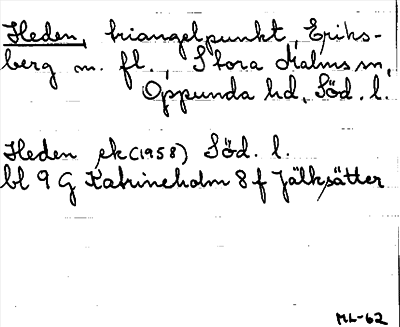 Heden, triangelpunkt, Eriks-
berg m. fl., Stora Malms sn,
Oppunda hd, Söd. l.
Heden ek (1958) Söd. l.
bl 9 G Katrineholm 8 f Jälksätter
ML-62